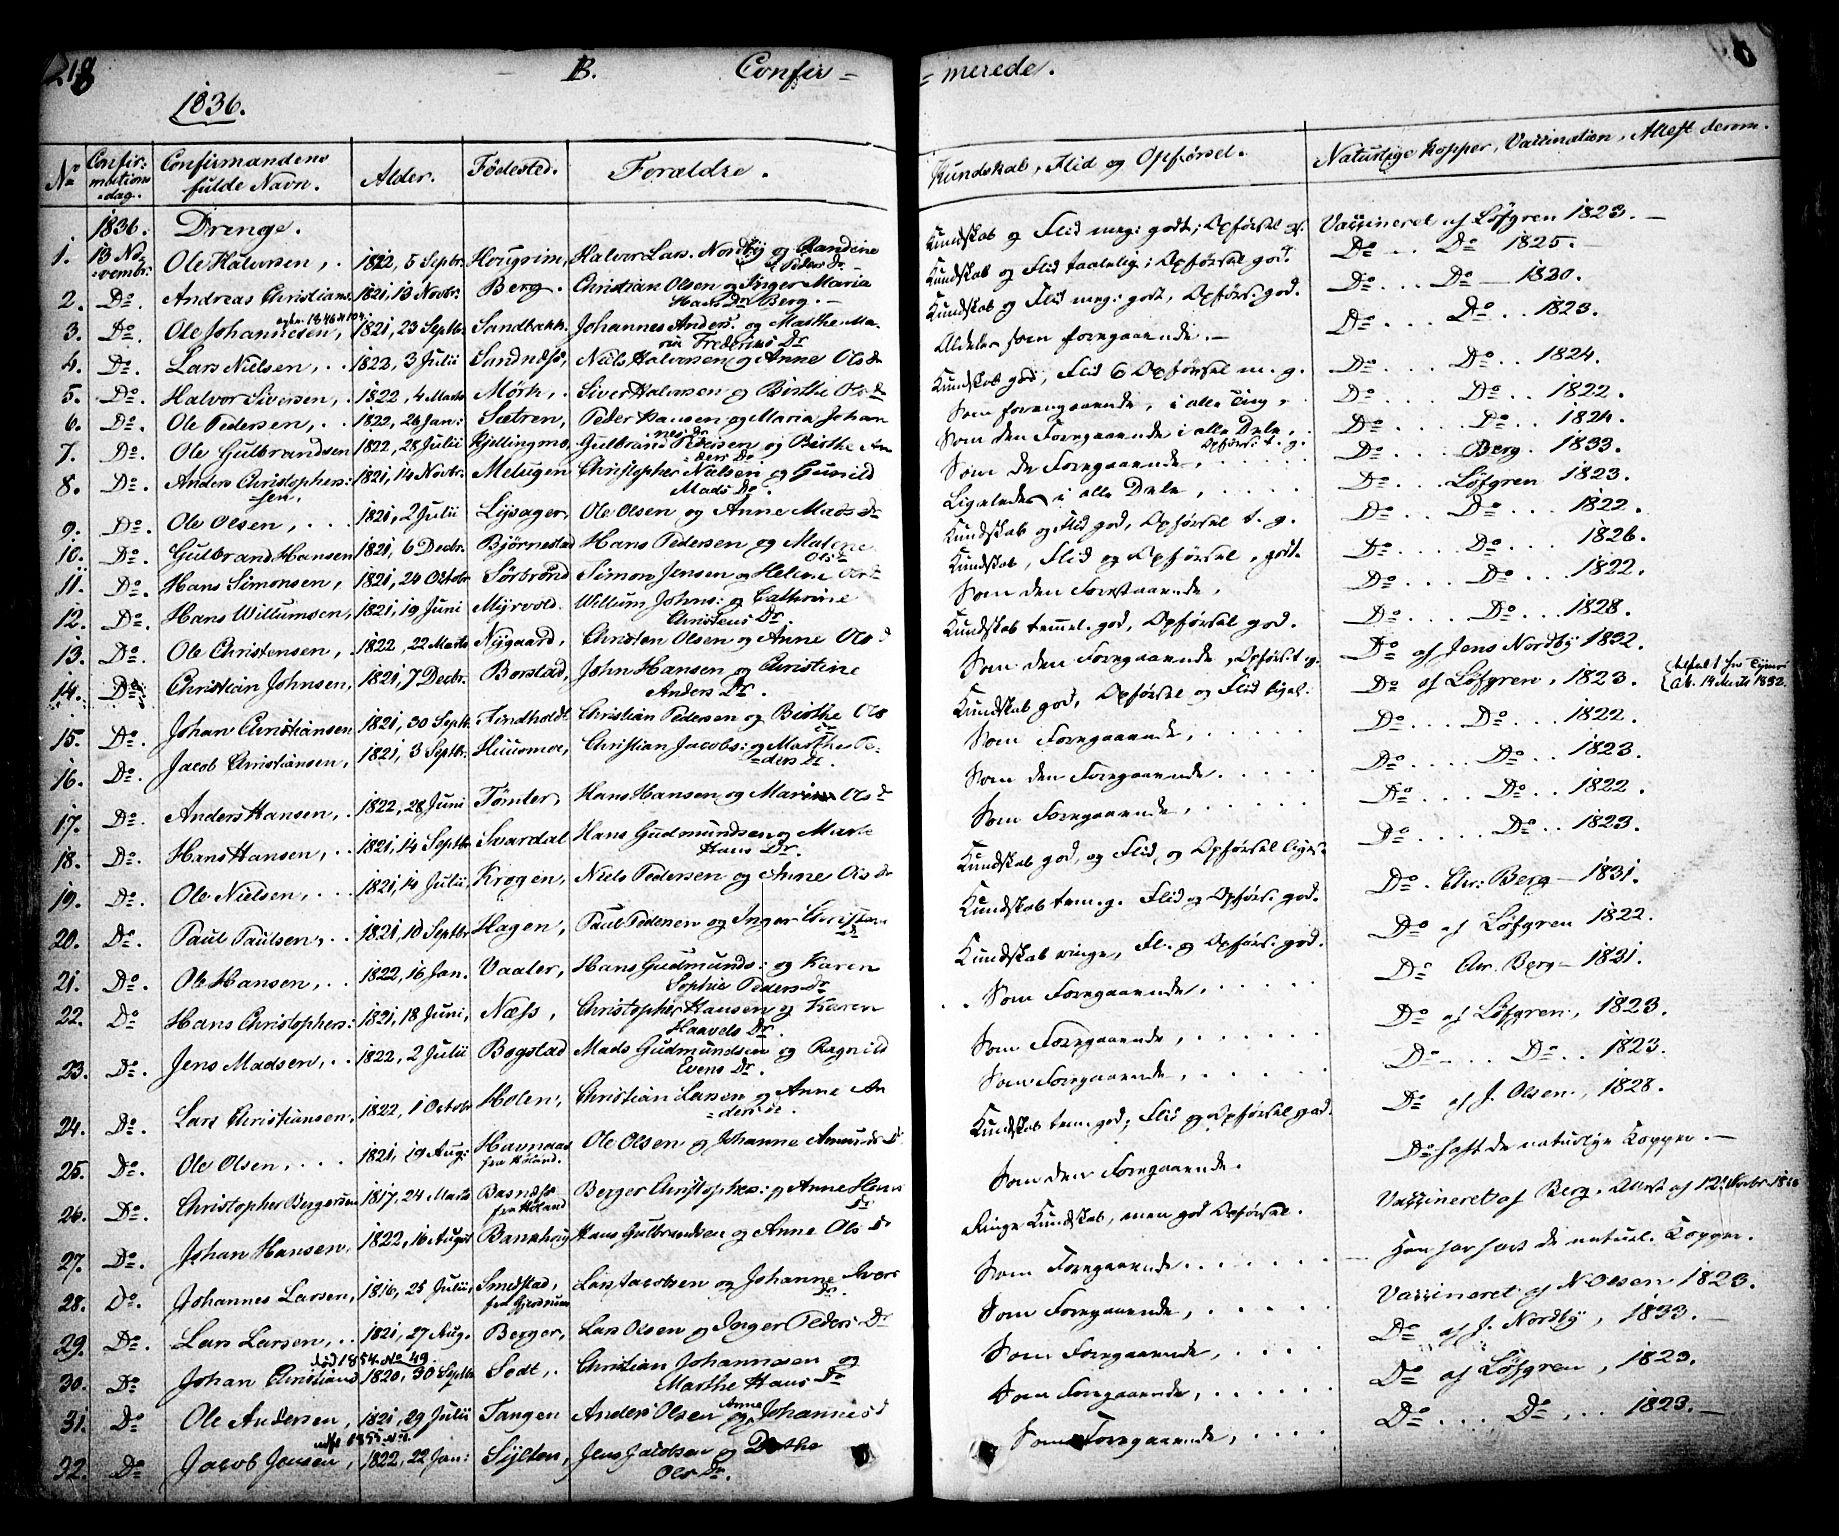 218
B. Confir = = merede.
1836.
No Confirmations dag. Confirmandens fulde Navn. Alder. Fødested. Forældre. Kundskab, Flid og Opførsel. Naturlige Kopper, Vaccination, Attest derom.
1836. Drenge.
1. 13 November: Ole Halvorsen, . 1822, 5 Septbr. Halvor Lars. Nordby og Randine Peders Dr. Kundskab og Flid meg: godt; Opførsel g. Vaccineret af Löfgren 1823.
2. Do. Andreas Christians: 1821, 13 Novbr: Berg. Christian Olsen og Inger Maria Hans Dr Berg. Kundskab og Flid taalelig; Opførsel god. Do Do 1825.
3. Do. Ole Johannesen, 1821, 23 Septbr Sandbækk. Johannes Anders. og Marthe Maria Frederiks Dr Kundskab og Flid meg: godt, Opførs. god. Do Do 1820.
4. Do. Lars Nielsen, . . 1822, 3 Julii Sandnæss, Niels Halvorsen og Anne Ols Dr Aldeles som foregaaende. Do Do 1823.
5. Do. Halvor Siversen, . 1822, 4 Marts Mörk, . Siver Halvorsen og Birthe Ols Dr Kundskab god, Flid & Opførsel m. g. Do Do 1824.
6. Do. Ole Pedersen, . . 1822, 26 Jan: Sætren, Peder Hansen og Maria Johannes Dr Som foregaaende, i alle Ting. Do Do 1822.
7. Do. Ole Gulbrandsen 1822, 28 Julii Kjellingmo, Gulbrand Pedersen og Birthe Anders Dr Som den Foregaaende i alle Dele, Do Do 1824.
8. Do. Anders Christophersen, 1821, 14 Novbr. Melsigen Christopher Nielsen og Gunild Mads Dr. Som de Foregaaende, Opførs: t. g. Do Berg. 1833.
9. Do. Ole Olsen, . . . 1821, 2 Julii Lysager, Ole Olsen og Anne Mads Dr Ligeledes i alle Dele, Do Löfgren 1823.
10. Do. Gulbrand Hansen 1821, 6 Decbr. Björnestad Hans Pedersen og Malene Ols Dr Kundskab og Flid god, Opførsel t. g. Do Do 1822.
11. Do. Hans Simonsen, 1821, 24 Octobr Sörbrönd Simon Jensen og Helene Ols Dr Kundskab, Flid og Opførsel, godt. Do Do 1826.
12. Do. Hans Willumsen, 1821, 19 Juni Myrvold. Willum Johns: og Cathrine Christens Dr. Som den Forestaaende, Do Do 1822.
13. Do. Ole Christensen, . 1822, 22 Marts Nygaard, Christen Olsen og Anne Ols d Kundskab temmel. god, Opførsel god. Do Do 1828.
14. Do. Christian Johnsen, 1821, 7 Decbr. Borstad, John Hansen og Christine Anders Dr. Som den Foregaaende, Opførs: t. g. Do af Jens Nordby 1832.
15. Do. Johan Christiansen 1821, 30 Septbr. Christian Pedersen og Birthe Ols Dr Kundskab god, Opførsel og Flid ligel: Do af Löfgren, 1823.
16. Do. Jacob Christiansen, 1821, 3 Septbr. Christian Jacobs: og Marthe Peders Dr. Som Foregaaende, Do Do 1822.
17. Do. Anders Hansen, . 1822, 28 Juni Tömter, Hans Hansen og Maria Ols Dr Som den Foregaaende. Do Do 1823.
18. Do. Hans Hansen, . . 1821, 14 Septbr Svardal Hans Gudmundsen og Marte Hans Dr. Som Foregaaende, Do Do 1822.
19. Do. Ole Nielsen, . . . 1821, 14 Julii Krogen, Niels Pedersen og Anne Ols Dr Kundskab god, og Flid, og Opførsel ligel: Do Do 1823.
20. Do. Paul Paulsen, . . 1821, 10 Septbr Hagen, Paul Pedersen og Inger Kundskab tem. g. Flid og Opførs. god. Do. Chr: Berg 1831.
21. Do. Ole Hansen, . . 1822, 16 Jan. Vaaler, Hans Gudmunds: og Karen Sophie Peders Dr Kundskab ringe, Fl. og Opførs. god. Do af Löfgren 1822.
22. Do Hans Christophers: 1821, 18 Juni, Næss, Christopher Hansen og Karen Haavels Dr. Som Foregaaende, Do Chr. Berg 1821.
23. Do. Jens Madsen, . . 1822, 2 Julii Bogstad Mads Gudmundsen og Ragnild Evens Dr. Som Foregaaende, Do af Löfgren, 1823.
24. Do. Lars Christiansen, 1822, 1 Octobr Holen, Christian Larsen og Anne Anders Dr. Som Foregaaende, Do Do 1823.
25. Do. Ole Olsen, . . . 1821, 19 Aug: Havnaas fra Höland. Ole Olsen og Johanne Amunds Dr Kundskab tem. god; Flid og Opførsel god. Do af J. Olsen, 1828.
26. Do. Christopher Bergersen 1817, 24 Marts fra Höland Berger Christophers: og Anne Hans Dr Som den Foregaaende. Do haft de naturlige Kopper.
27. Do. Johan Hansen, 1822, 16 August Hans Gulbrandsen og Anne Ols Dr Ringe Kundskab, men god Opførsel. Vaccineret af Berg.
28. Do. Johannes Larsen, 1816, 25 Julii, Smedstad, fra Gjerdrum Lars Jacobsen og Johanne Ivers Dr. Som Foregaaende. Han har haft de naturl. Kopper.
29. Do. Lars Larsen, . . 1821, 27 Aug. Berger, Lars Olsen og Inger Peders Dr Som Foregaaende, Vaccineret af N Olsen 1823.
död 1854. No 49.
30. Do Johan Christians 1820, 30 Septbr Sodt, . Christian Johannesen og Marthe Hans Dr Som Foregaaende, Do af J. Nordby, 1833.
31. Do Ole Andersen, 1821, 29 Julii Tangen Anders Olsen og Anne Johannes d Som Foregaaende, Do af Löfgren, 1823.
32. Do Jacob Jensen, 1822, 22 Jan: Sylten, Jens Jacobsen og Dorthe Ols Dr. Som Foregaaende, Do Do 1823.